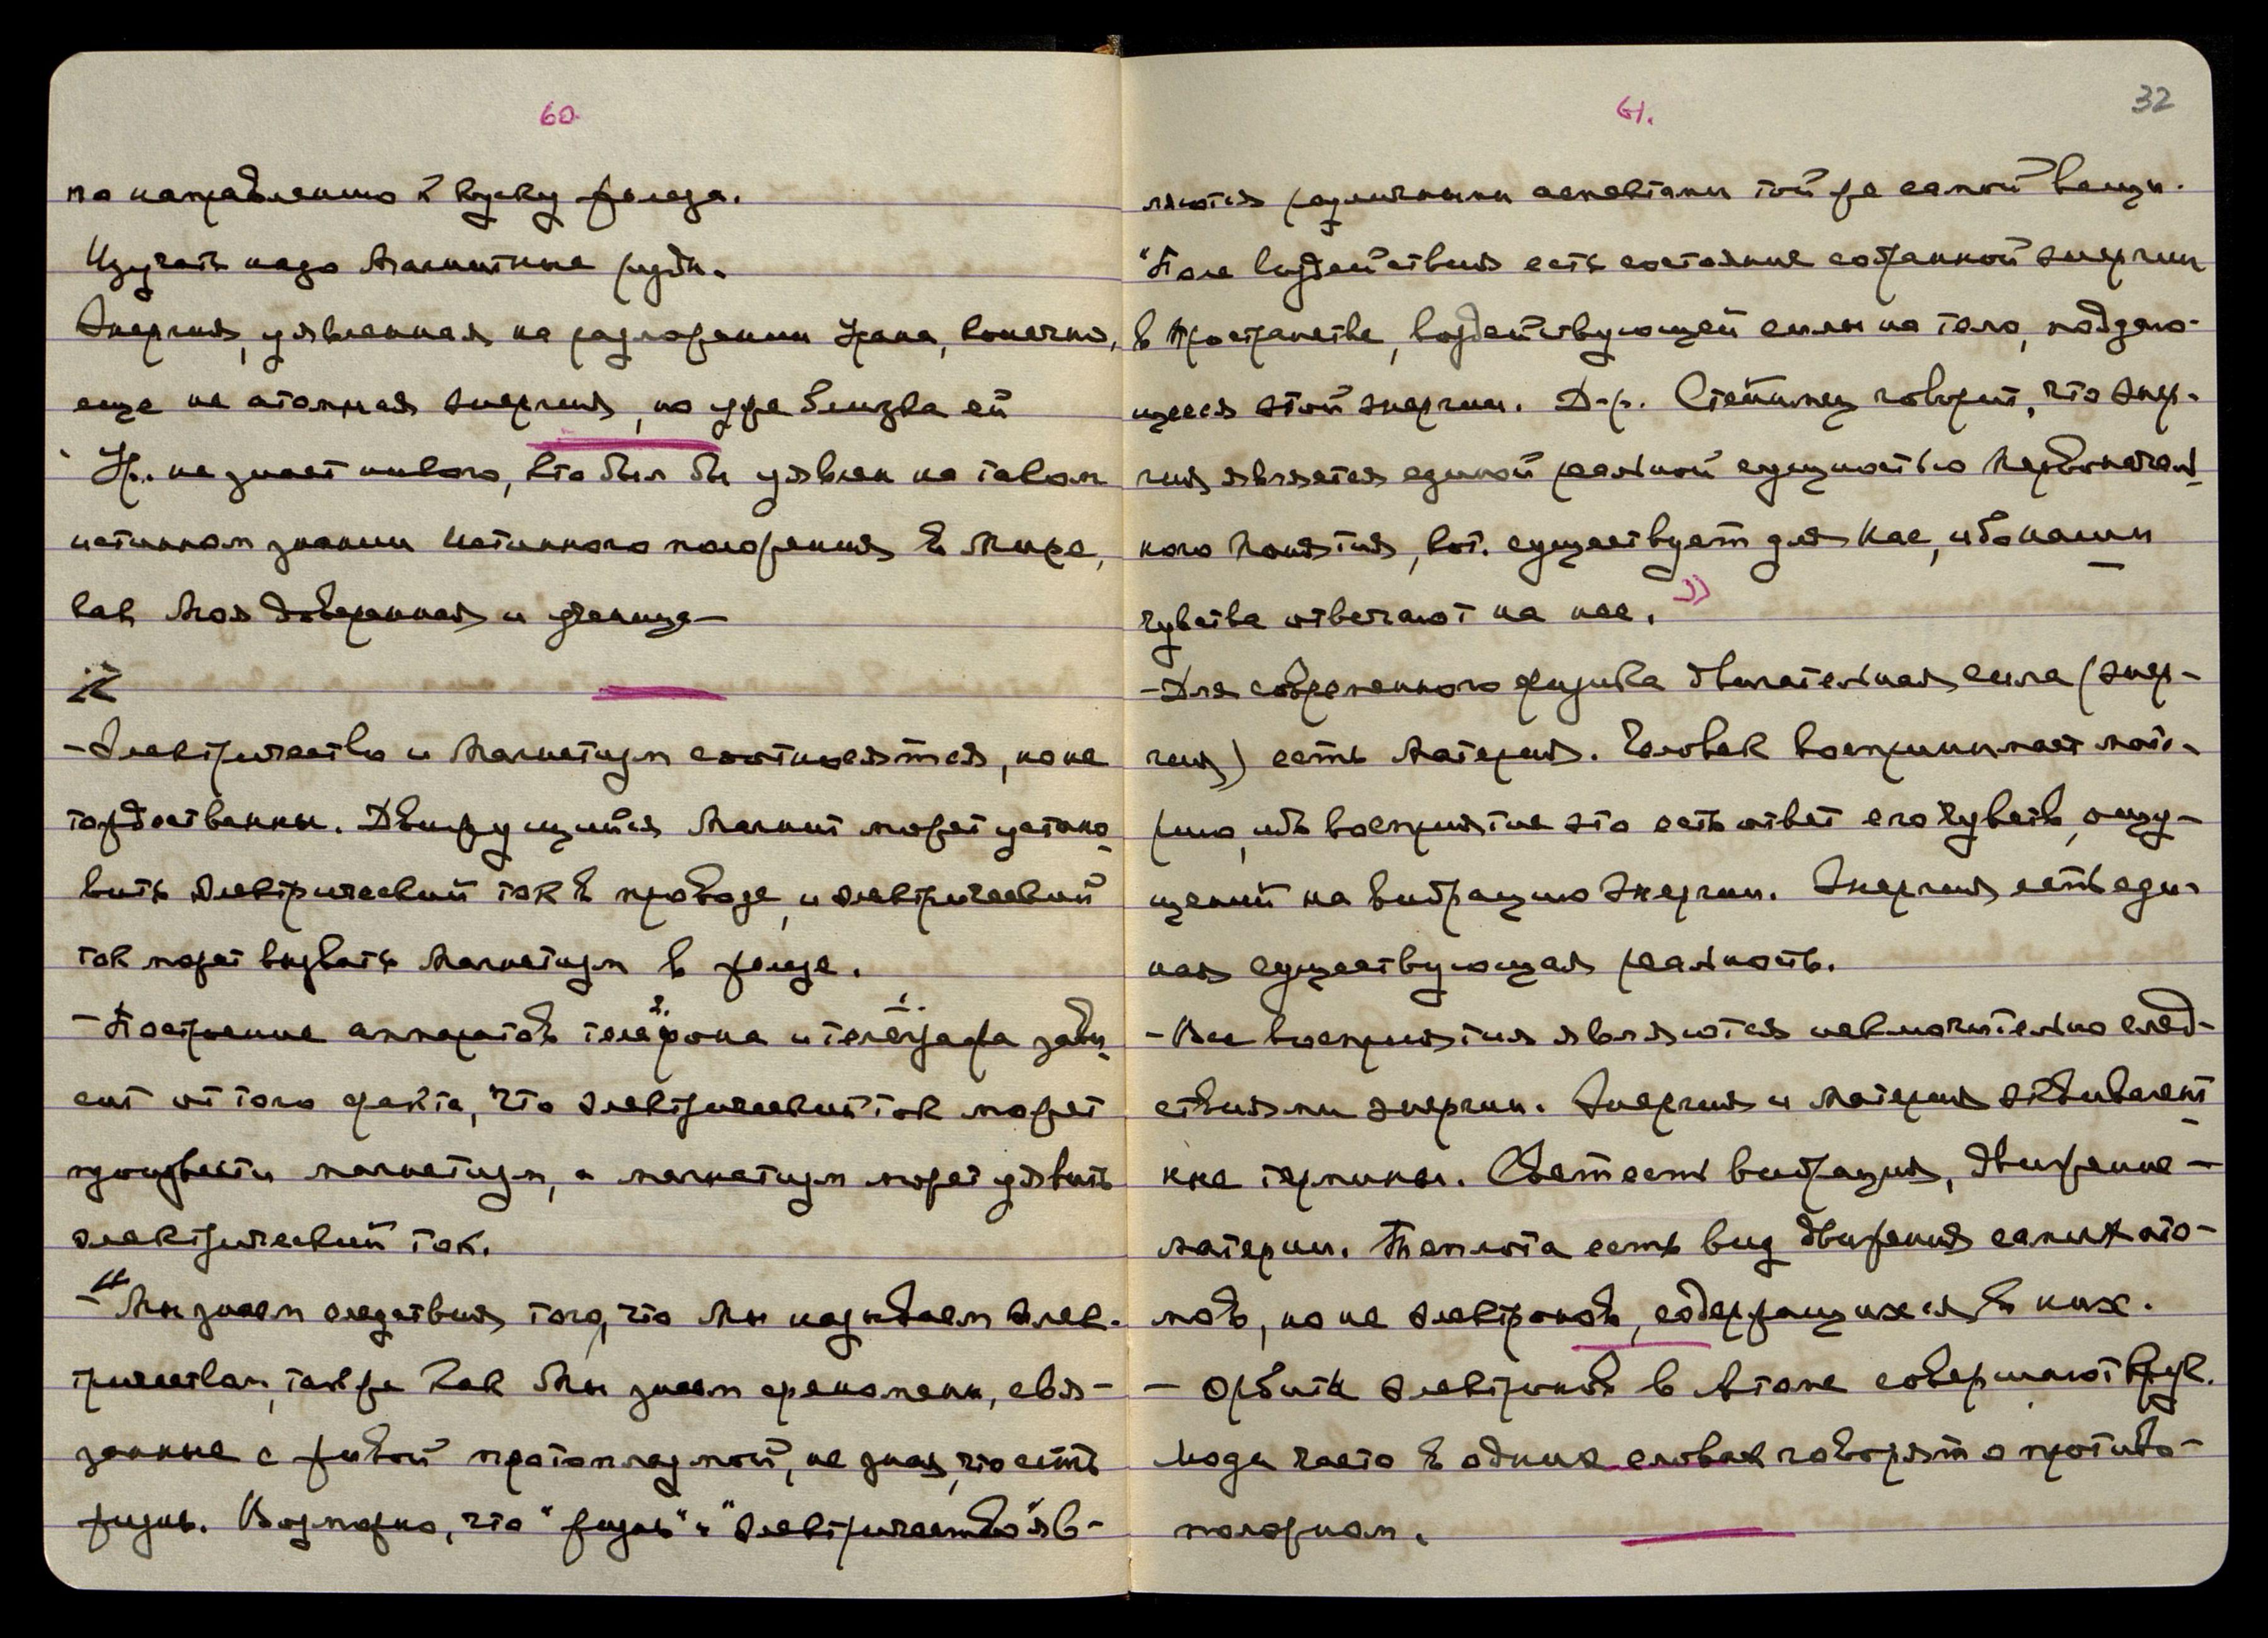 60.
по направлению к куску железа.
Изучать надо Магнитные руды.
Энергия, уявленная на разложении Урана, конечно,
еще не атомная энергия, но уже близка ей
Ур. не знает никого, кто был бы уявлен на таком
истинном знании Истинного положения в Мире,
как Моя доверенная и ученица —
— Электричество и Магнетизм соотносятся, но не
тождественны. Движущийся Магнит может устано-
вить электрический ток в проводе, и электрический
ток может вызвать Магнетизм в железе.
— Построение аппаратов телефона и телеграфа зави-
сит от того факта, что электрический ток может
произвести магнетизм, а магнетизм может уявить
электрический ток.
— "Мы знаем следствия того, что Мы называем элек-
тричеством, так же как Мы знаем феномены, свя-
занные с живой протоплазмой, не зная, что есть
жизнь. Возможно, что "жизнь" и "электричество" яв-
61.
32
ляются различными аспектами той же самой вещи.
"Поле воздействия есть состояние собранной энергии
в Пространстве, воздействующей силы на тело, поддаю-
щееся этой энергии. Д-р. Стейнмец говорит, что энер-
гия является единой реальной сущностью Первоначаль-
ного Понятия, кот. существует для Нас, ибо наши
чувства отвечают на нее."
— Для современного физика двигательная сила (энер-
гия) есть Материя. Человек воспринимает мате-
рию, ибо восприятие это есть ответ его чувств, ощу-
щений на вибрацию Энергии. Энергия есть еди-
ная существующая реальность.
— Все восприятия являются исключительно след-
ствиями энергии. Энергия и Материя эквивалент-
ные термины. Свет есть вибрация, движение —
материи. Теплота есть вид движения самих ато-
мов, но не электронов, содержащихся в них.
— Орбиты электронов в Атоме совершают круг.
Люди часто в одних словах говорят о противо-
положном.